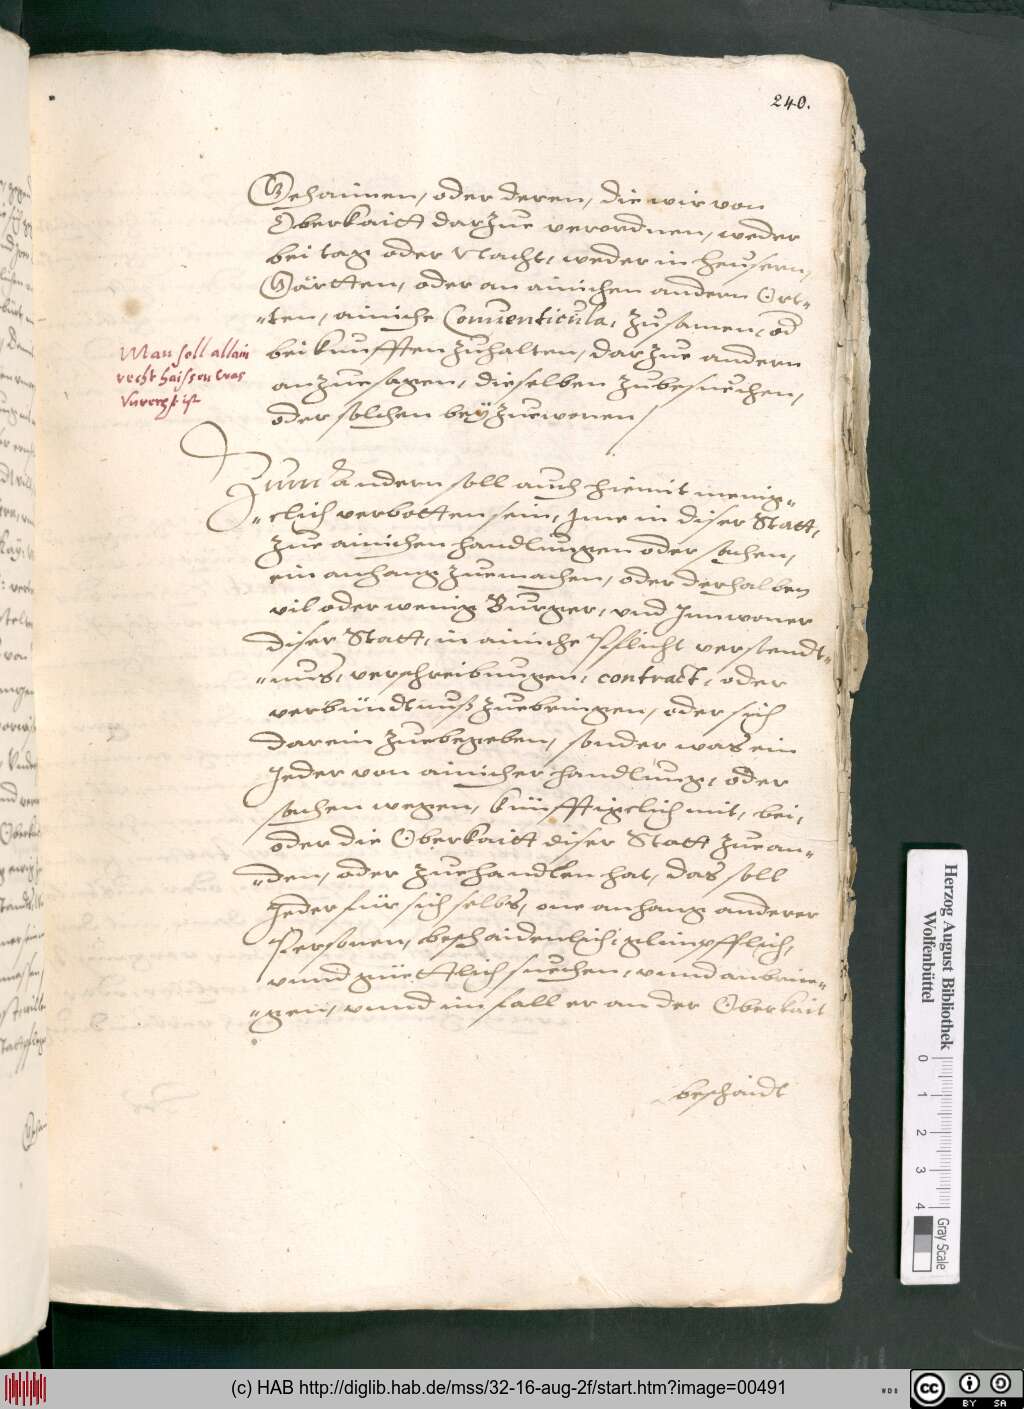 240.
Gehaimen, oder deren, die wir von
Oberkaitt darzue verordnen, weder
bei tag oder Nacht, weder in heusern,
Gärtten, oder an ainichen andern Ort-
-ten, ainiche Conuenticula, zusamen, od
bei kunfften zuhalten, darzue andern
anzuesagen, dieselben zubesuechen,
oder solchen beÿzuewonen /
Man soll allain
recht haissen was
Zum Andern soll auch hiemit menig-
-clich verbotten sein, Inn in diser Statt,
zue ainichen handlungen oder sachen,
ein anhang zuemachen, oder derhalben
vil oder wenig Burger, vnd Innwoner
diser Statt, in ainiche Pflicht verstendt-
-nus, verschreibungen, contract, oder
verbündtnuß zuebringen, oder sich
darein zuebegeben, sonder was ein
Jeder von ainicher handlung, oder
sachen wegen, künfftigclich mit, bei,
oder die Oberkaitt diser Statt zue an-
-den, oder zuehandlen hat, das soll
Jeder für sich selbs, one anhang anderer
Personen, beschaidenlich, glimpfflich,
vnnd güettlich suechen, vnnd anbrin-
-gen, vnnd im fall er an der Oberkait
beschaidt
Herzog August Bibliothek
Wolfenbüttel
0 1 2 3 4
Gray Scale
(c) HAB http://diglib.hab.de/mss/32-16-aug-2f/start.htm?image=00491
WDB
cc BY SA